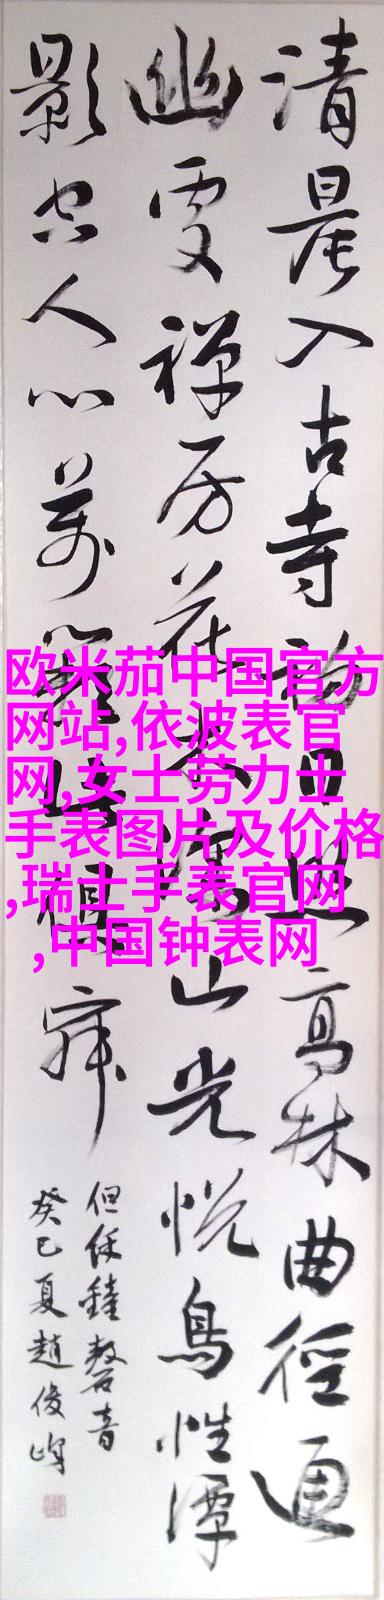 清晨入古寺初日照高林曲徑通
幽處禅房花木深山光悦鳥性潭
影空人心萬籟此俱寂
但餘鐘磬音
癸巳夏趙俊峰
欧米茄中国官方
网站,依波表官
网,女士劳力士
手表图片及价格
,瑞士手表官网
,中国钟表网